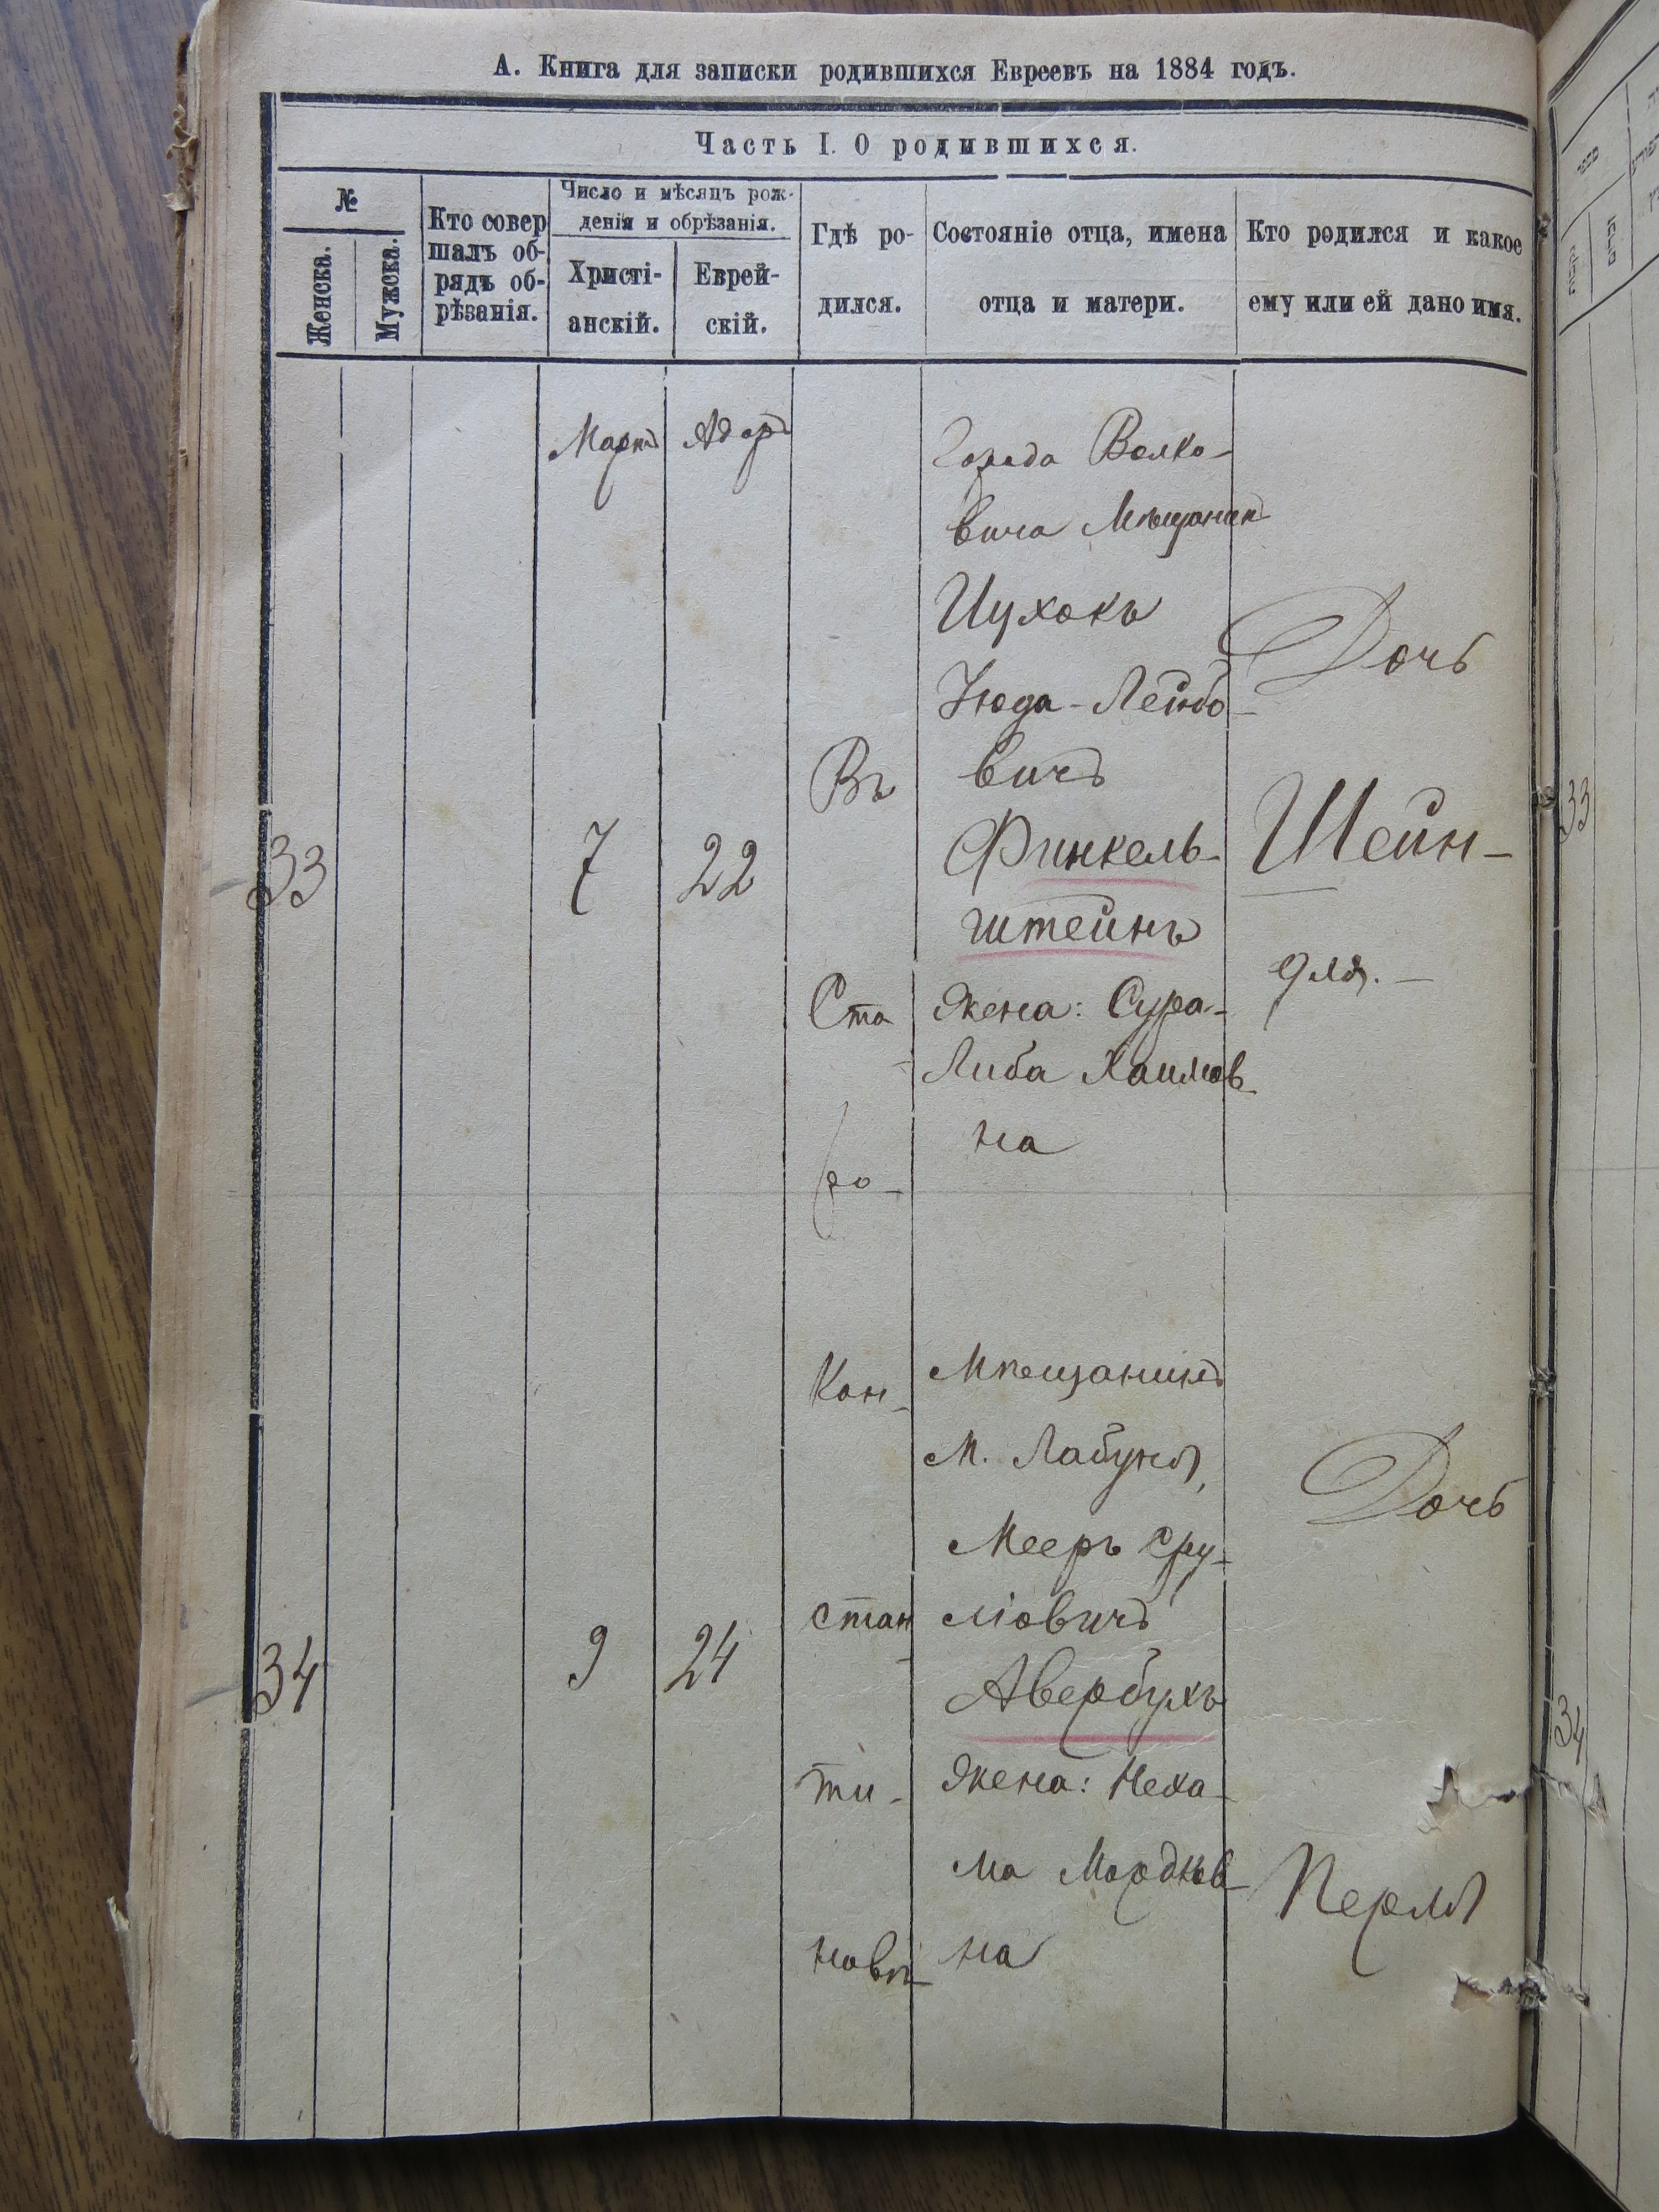 А. Книга для записки родившихся Евреевъ на 1884 годъ.
Часть I. О родившихся.
№
Женска.
Мужска.
Кто совер
шалъ об-
рядъ об-
рѣзанія.
Число и мѣсяцъ рож-
денія и обрѣзанія.
Христі-
анскій.
Еврей-
скій.
Гдѣ ро-
дился.
Состояніе отца, имена
отца и матери.
Кто родился и какое
ему или ей дано имя.
Мартъ
Адаръ
33
7
22
Въ
Ста
ро-
Кон-
стан
ти-
новѣ
Города Волко-
вича Мѣщанинъ
Ицхокъ
Іюда-Лейбо-
вичъ
Финкель-
штейнъ
Жена: Сура-
Либа Хаимов-
на
Дочь
Шейн-
для.-
34
9
24
Мѣщанинъ
М. Лабунь,
Мееръ Сру-
ліовичъ
Авербухъ
Жена: Неха-
ма Мордков-
на
Дочь
Перля
33
34